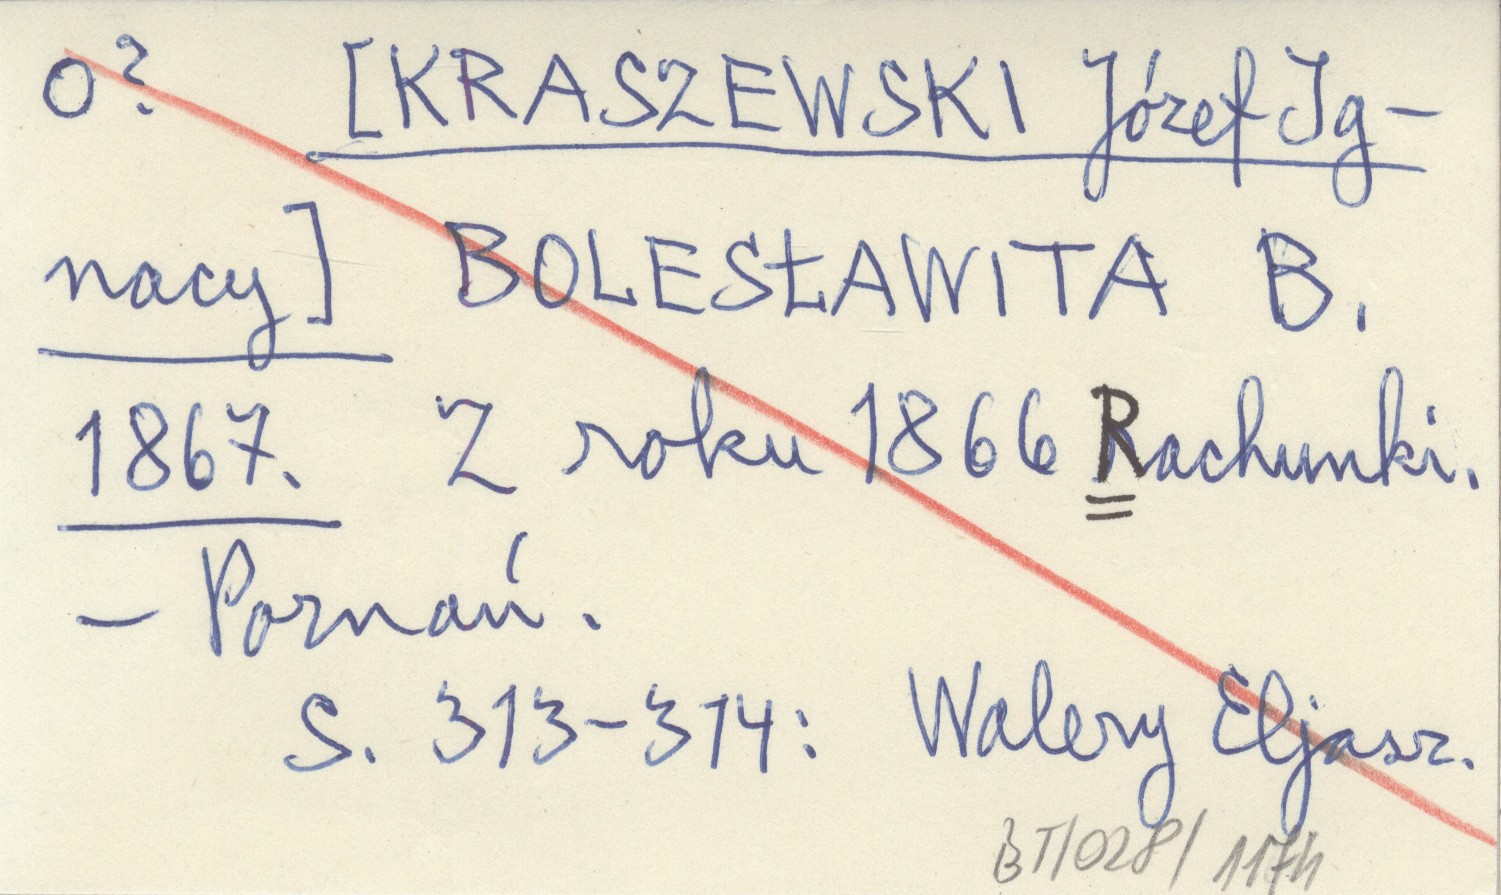 o? [KRASZEWSKI Józef Ig-
nacy] BOLESŁAWITA B.
1867. Z roku 1866 Rachunki.
- Poznań.
S. 313-314: Walery Eljasz.
BT/028/1174